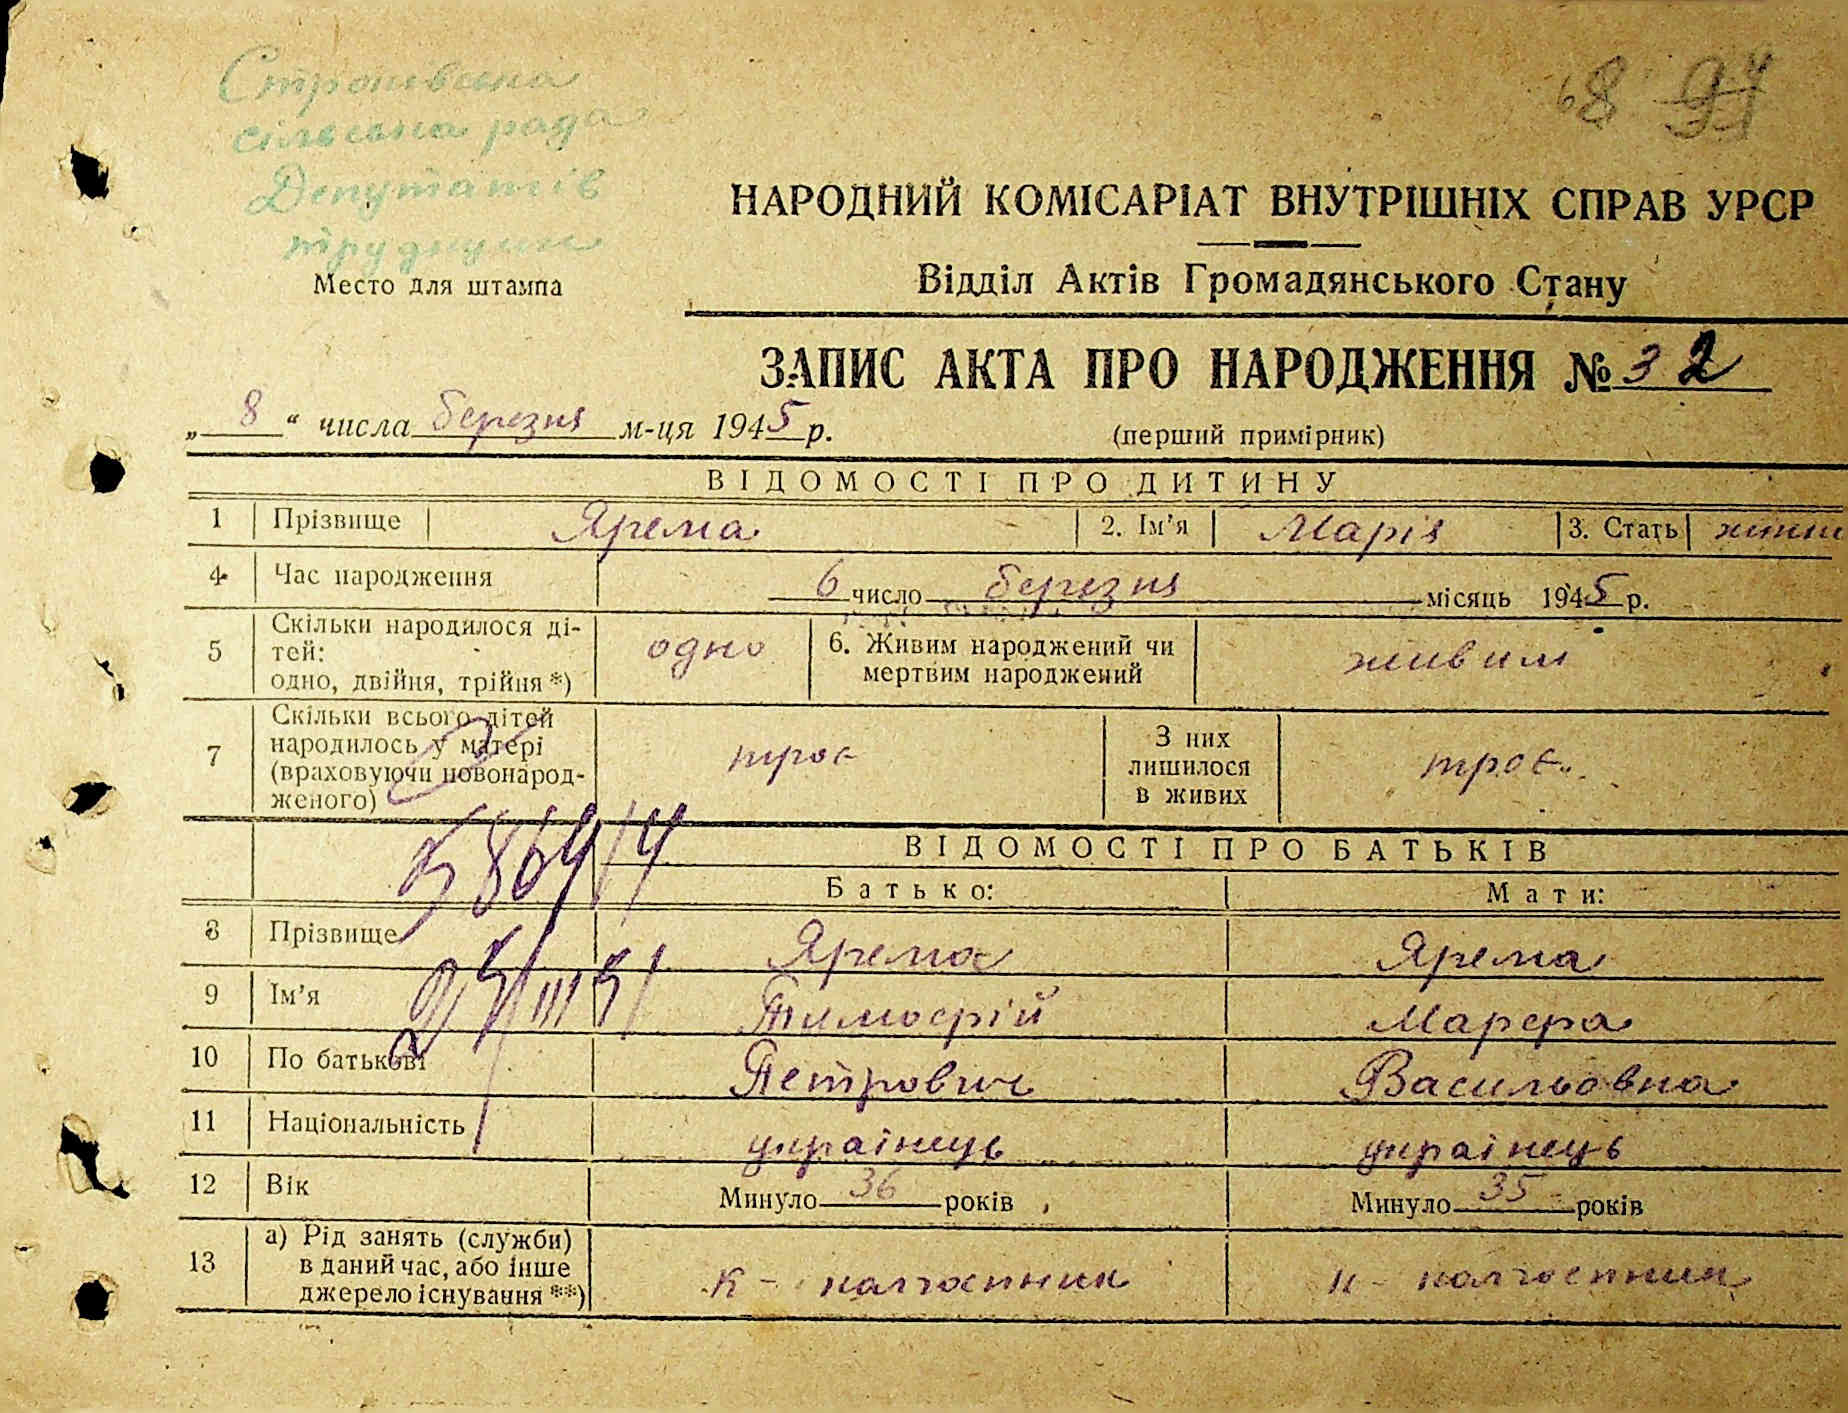 сільська рада
Депутатів
трудящих
Место для штампа
68 97
НАРОДНИЙ КОМІСАРІАТ ВНУТРІШНІХ СПРАВ УРСР
Відділ Актів Громадянського Стану
ЗАПИС АКТА ПРО НАРОДЖЕННЯ № 32
„ 8 “ числа березня м-ця 1945 р.
(перший примірник)
ВІДОМОСТІ ПРО ДИТИНУ
1 Прізвище Ярема 2. Ім'я Марія 3. Стать
4 Час народження 6 число березня місяць 1945 р.
5 Скільки народилося ді-
тей:
одно, двійня, трійня *) одно 6. Живим народжений чи
мертвим народжений живим
7 Скільки всього дітей
народилось у матері
(враховуючи новонарод-
женого) троє З них
лишилося
в живих троє
ВІДОМОСТІ ПРО БАТЬКІВ
Батько: Мати:
8 Прізвище Ярема Ярема
9 Ім'я Тимофій Марфа
10 По батькові Петрович Васильовна
11 Національність українець українець
12 Вік Минуло 36 років Минуло 35 років
13 а) Рід занять (служби)
в даний час, або інше
джерело існування **) к - колгоспник к - колгоспник